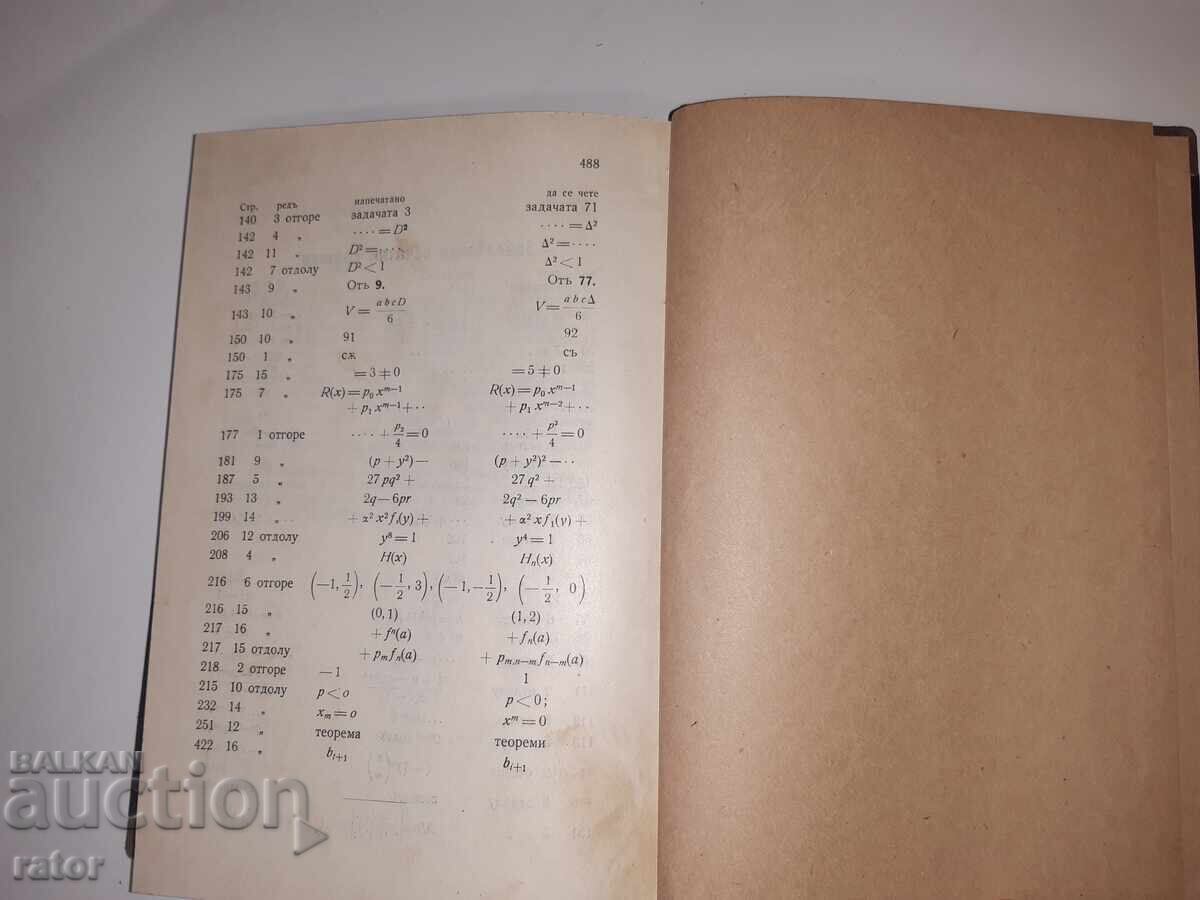 488
Стр. редъ напечатано да се чете
140 3 отгоре задачата 3 задачата 71
142 4 „ ····=D² ····=Δ²
142 11 „ D²=···· Δ²=····
142 7 отдолу D²<1 Δ²<1
143 9 „ Отъ 9. Отъ 77.
143 10 „ V=abcD/6 V=abcΔ/6
150 10 „ 91 92
150 1 „ сѫ съ
175 15 „ =3≠0 =5≠0
175 7 „ R(x)=p₀xᵐ⁻¹ R(x)=p₀xᵐ⁻¹
+p₁xᵐ⁻¹+·· +p₁xᵐ⁻²+··
177 1 отгоре ····+p₂/4=0 ····+p²/4=0
181 9 „ (p+y²)— (p+y²)²—··
187 5 „ 27pq²+ 27q²+
193 13 „ 2q—6pr 2q²—6pr
199 14 „ +α²x²fᵢ(y)+ +α²xf₁(y)+
206 12 отдолу y⁸=1 y⁴=1
208 4 „ H(x) Hₙ(x)
216 6 отгоре (—1, 1/2), (—1/2, 3), (—1, —1/2), (—1/2, 0)
216 15 „ (0,1) (1,2)
217 16 „ +fⁿ(a) +fₙ(a)
217 15 отдолу +pₘfₙ(a) +pₘ.ₙ₋ₘfₙ₋ₘ(a)
218 2 отгоре —1 1
215 10 отдолу p<o p<0;
232 14 „ xₘ=o xᵐ=0
251 12 „ теорема теореми
422 16 „ bᵢ₊₁ bᵢ₊₁
BALKAN
auction
rator